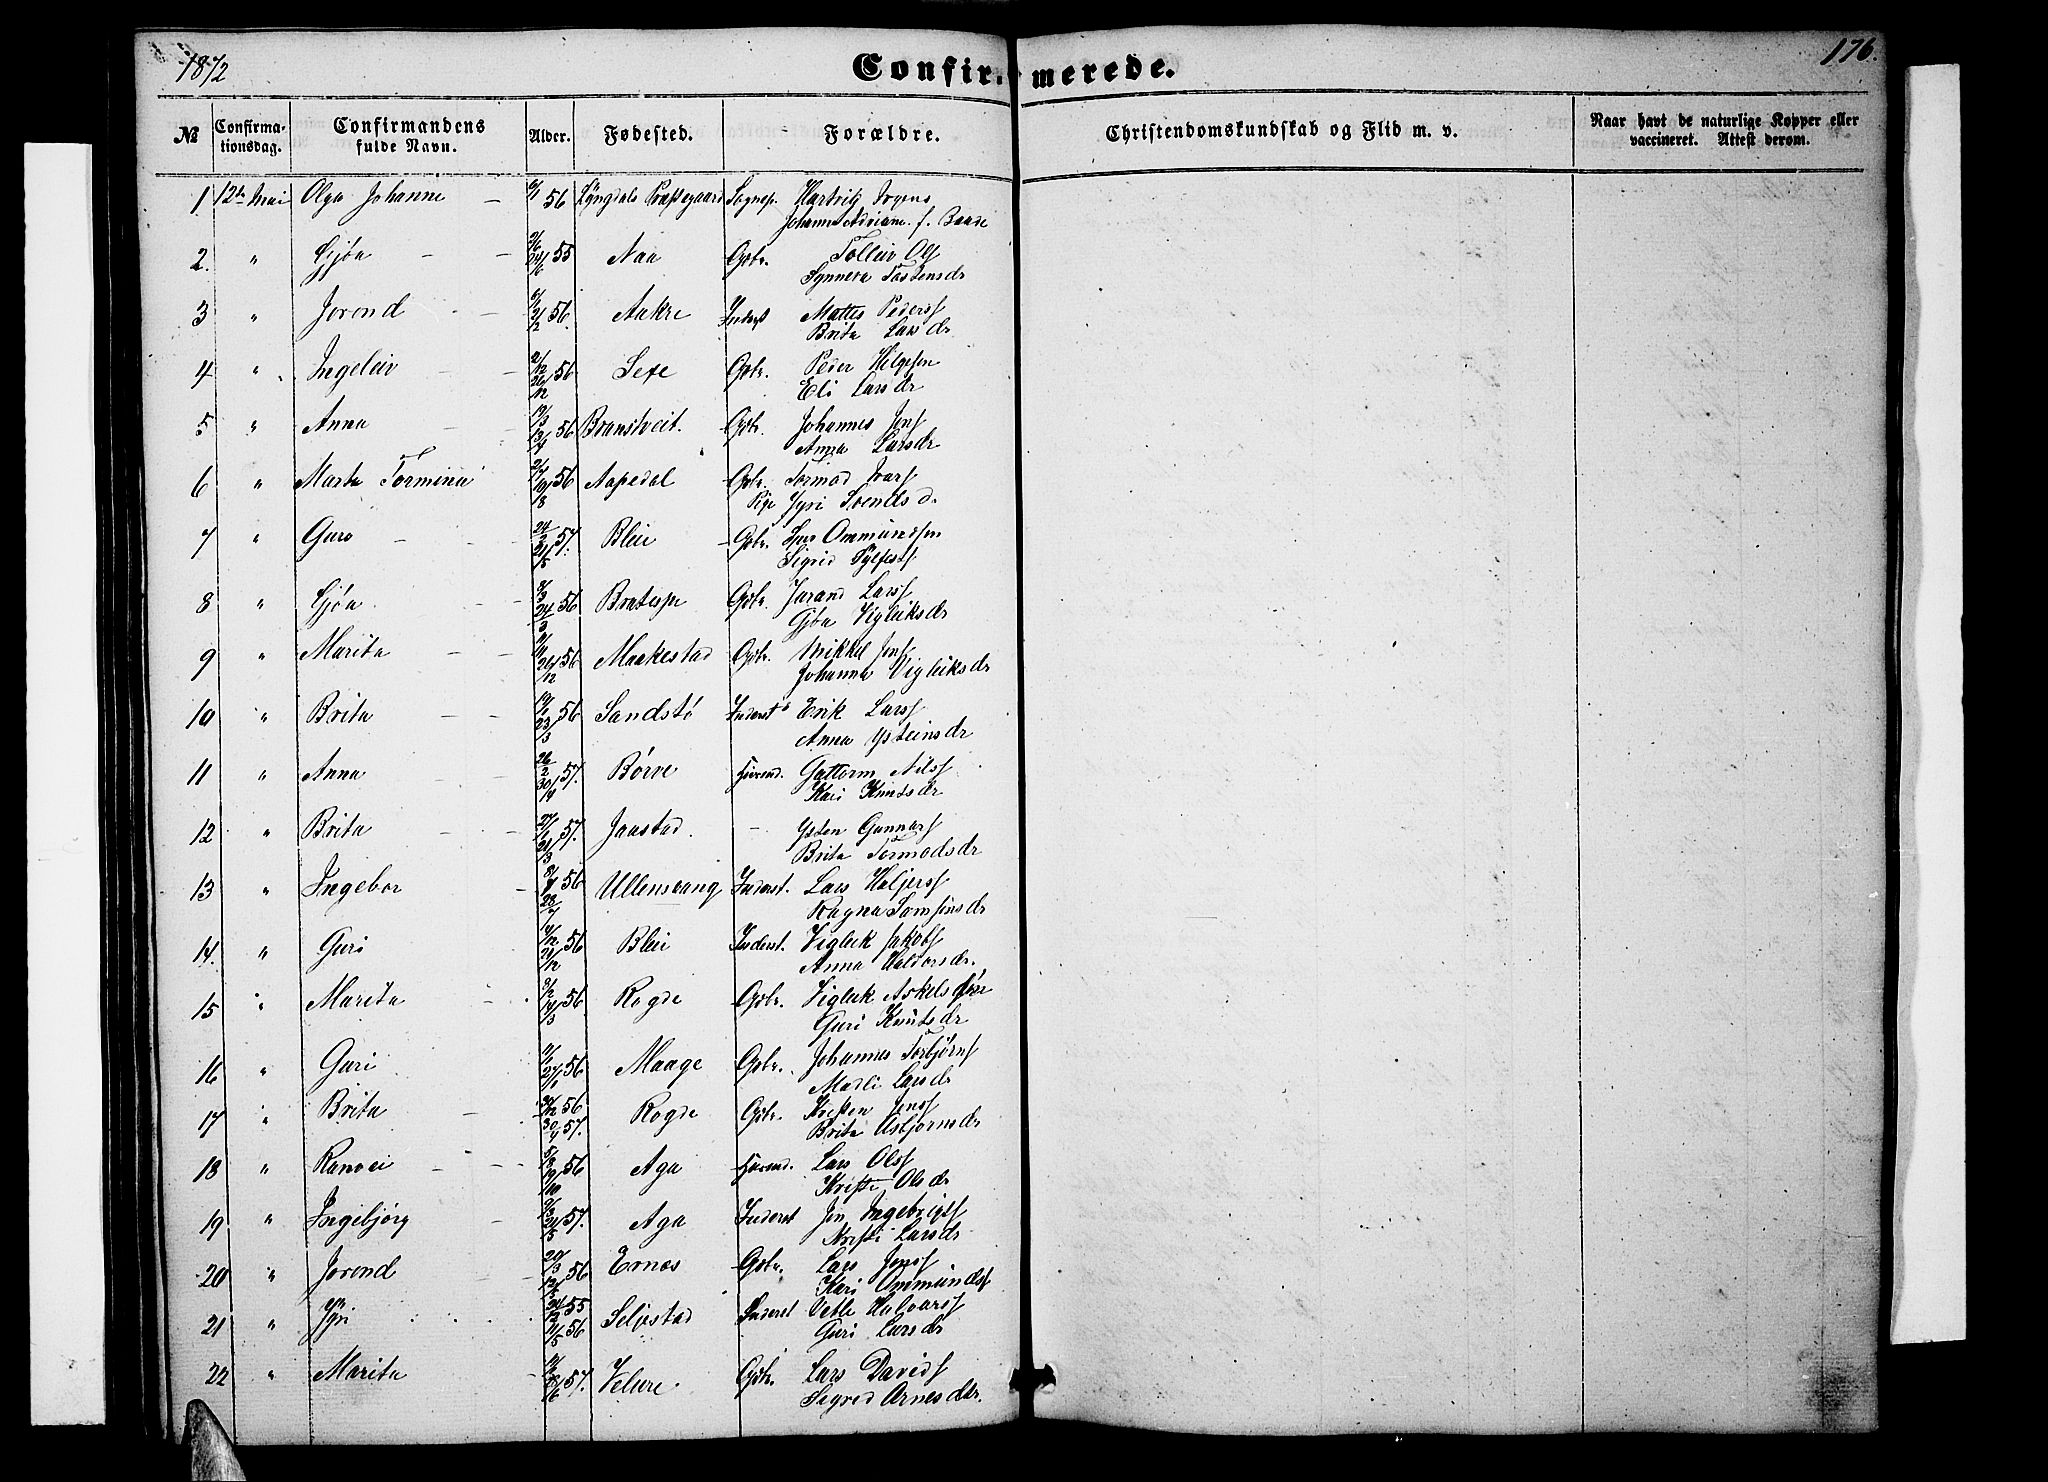 1872
Confirmerede.
176.
№
Confirmationsdag.
Confirmandens fulde Navn.
Alder.
Fødested.
Forældre.
Christendomskundskab og Flid m. v.
Naar havt de naturlige Kopper eller vaccineret. Attest derom.
1 12te Mai Olga Johanne 56 Lyngdals Præstegaard Sognep. Hartvig Irgens
Johanne Adriane f. Baade
2. " Gjöa 55 Naa Gbr. Tolleiv Ols
Synneva Tostensdr
3 " Jorond 56. Aakre Inderst Mattis Peders
Brita Larsdr
4 " Ingeleiv 56 Sexe Gbr. Peder Helgesen
Eli Larsdr
5 " Anna 56 Branstveit. Gbr. Johannes Jons
Anna Larsdr
6 " Marta Tormina 56 Aapedal Gbr. Tormod Ivars
Pige Jyri Svends d.
7 " Guro 57. Bleie Gbr. Lars Ommundsen
Sigrid
8 " Gjöa 56 Bratespe Gbr. Jorand Lars
Gjöa Vigleiksdr
9 " Marita 56 Maakestad Gbr. Mikkel Jons
Johanna Vigleiksdr
10 " Brita 56 Sandstö Inderst Erik Lars
Anna Ysteinsdr
11 " Anna 57. Börve Huusmd. Guttorm Nils
Kari Knutsdr
12 " Brita 57. Jaastad. — Ysten Gunnars
Brita Tormodsdr
13 " Ingebor 56 Ullensvang Inderst. Lars
Ragna Samsonsdr
14. " Guri 56 Bleie Inderst. Vigleik Jakobs
Anna Haldorsdr.
15 " Marita 56 Rogde Gbr. Vigleik Askels
Guri Knutsdr
16 " Guri 56 Maage Gbr. Johannes Torbjörns
Marli Larsdr
17 " Brita 56 57. Rogde Gbr. Kristen Jons
Brita Asbjornsdr
18 " Ranvei 56 Aga Huusmd. Lars Ols
Kristi Olsdr
19 " Ingebjörg 57. Aga Inderst Jon Ingebrigts
Kristi Larsdr
20 " Jorond 56 Ernæs Gbr. Lars Jons
Kari Ommunds
21 " Jyri 55 56 Seljestad Inderst Vetle Halvars
Guri Larsdr
22 " Marita 57. Velure Gbr. Lars Davids
Sigrid Arnesdtr.